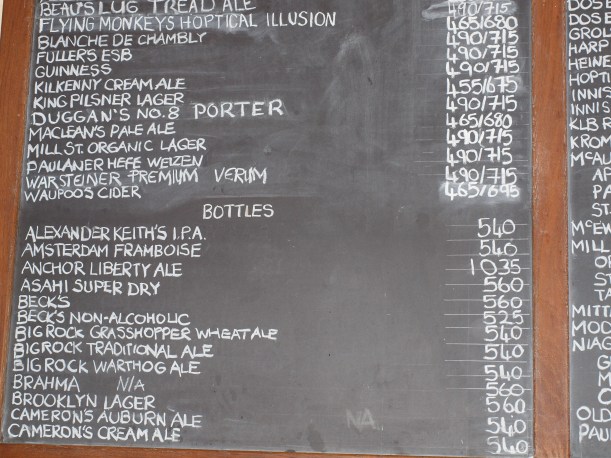 BEAU'S LUG TREAD ALE 490/715
FLYING MONKEYS HOPTICAL ILLUSION 465/680
BLANCHE DE CHAMBLY 490/715
FULLERS ESB 490/715
GUINNESS 490/715
KILKENNY CREAM ALE 455/675
KING PILSNER LAGER 490/715
DUGGAN'S NO.8 PORTER 465/680
MACLEAN'S PALE ALE 490/715
MILL ST. ORGANIC LAGER 490/715
PAULANER HEFE WEIZEN 490/715
WARSTEINER PREMIUM VERUM 490/715
WAUPOOS CIDER 465/695
BOTTLES
ALEXANDER KEITH'S I.P.A. 540
AMSTERDAM FRAMBOISE 540
ANCHOR LIBERTY ALE 1035
ASAHI SUPER DRY 560
BECK'S 560
BECK'S NON-ALCOHOLIC 525
BIG ROCK GRASSHOPPER WHEAT ALE 540
BIG ROCK TRADITIONAL ALE 540
BIG ROCK WARTHOG ALE 540
BRAHMA N/A 560
BROOKLYN LAGER 560
CAMERON'S AUBURN ALE NA 540
CAMERON'S CREAM ALE 540
DOS E
GROL
HARP
HEINE
HOPT
INNIS
INNIS
KLB R
KROM
MCAU
AP
PA
ST
MCEW
MILL
OR
ST
TA
MITTA
MOO
NIAG
G
M
O
OLD
PAU